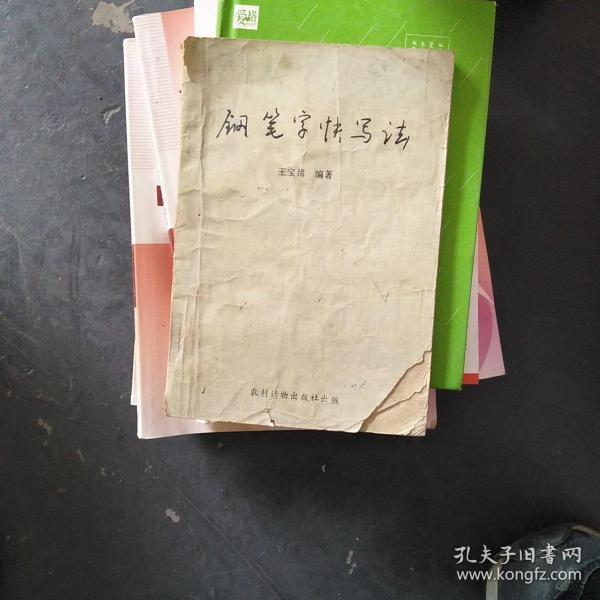 爱格
钢笔字快写法
王宝洺 编著
农村读物出版社出版
孔夫子旧書网
www.kongfz.com